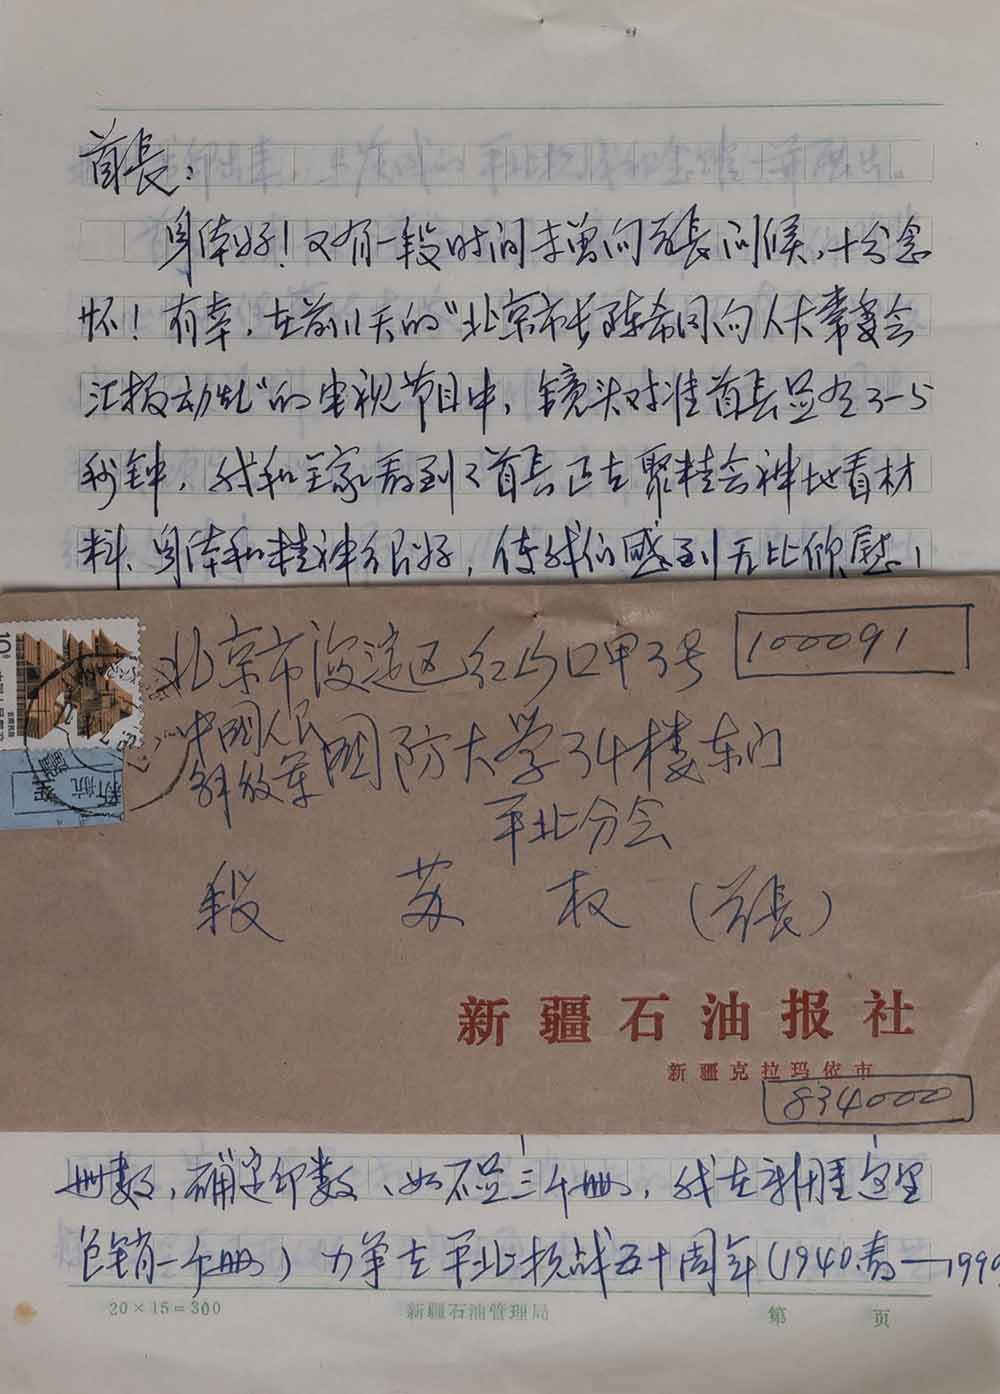 首長：
身体好！又有一段时间未曾向首長问候，十分念
怀！有幸，在前几天的"北京市长陈希同向人大常委会
汇报动乱"的电视节目中，镜头对准首長足有3-5
秒钟，我和全家看到了首長正在聚精会神地看材
料、身体和精神很好，使我们感到无比欣慰！
北京市海淀区红山口甲3号 100091
中国人民解放军国防大学34楼东门
平北分会
段苏权（首長）
新疆石油报社
新疆克拉玛依市
834000
册数，确定印数、如不足三千册，我在新疆这里
包销一千册）力争在平北抗战五十周年（1940.春—1990
20×15=300 新疆石油管理局 第 页